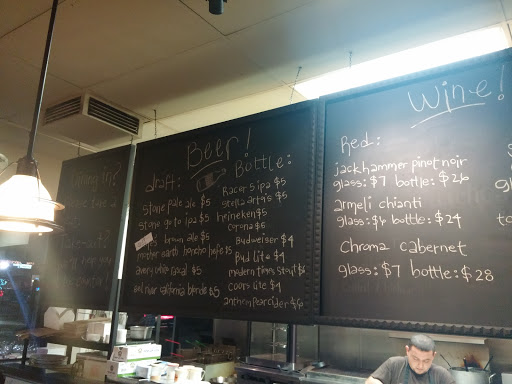 Beer!
draft:
stone pale ale $5
stone go to ipa $5
brown ale $5
mother earth honcho hefe $5
avery white $5
eel river california blonde $5
Bottle:
Racer 5 ipa $5
stella artois $5
heineken $5
corona $5
Budweiser $4
Bud lite $4
modern times stout $6
coors lite $4
anthem pear cider $6
Wine!
Red:
jackhammer pinot noir
glass: $7 bottle: $26
armeli chianti
glass: $6 bottle: $24
chroma cabernet
glass: $7 bottle: $28